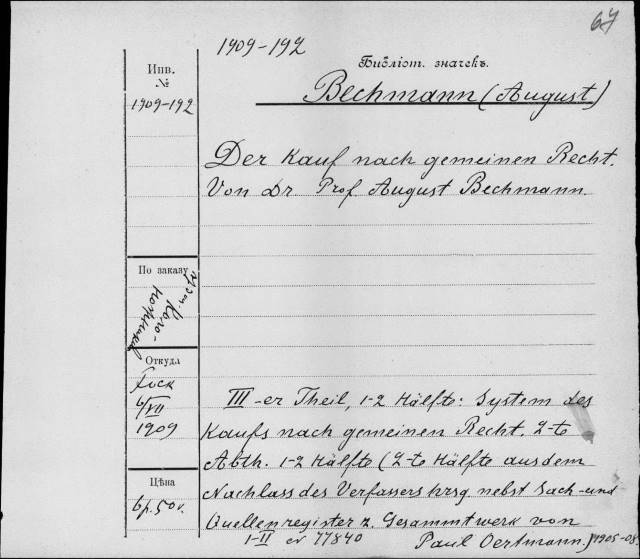 67
1909-192
Инв.
№
1909-192
Библіот. значекъ.
Bechmann (August)
Der Kauf nach gemeinen Recht.
Von Dr Prof. August Bechmann.
По заказу
Откуда
Fock
6/VII
1909
Цѣна
6р.50к.
III-er Theil, 1-2 Hälfte: System des
Kaufs nach gemeinen Recht. 2-te
Abth. 1-2 Hälfte (2-te Hälfte aus dem
Nachlass des Verfassers hrsg. nebst Sach- und
Quellenregister z. Gesammtwerk von
Paul Oertmann.) 1905-08
I-II 77840